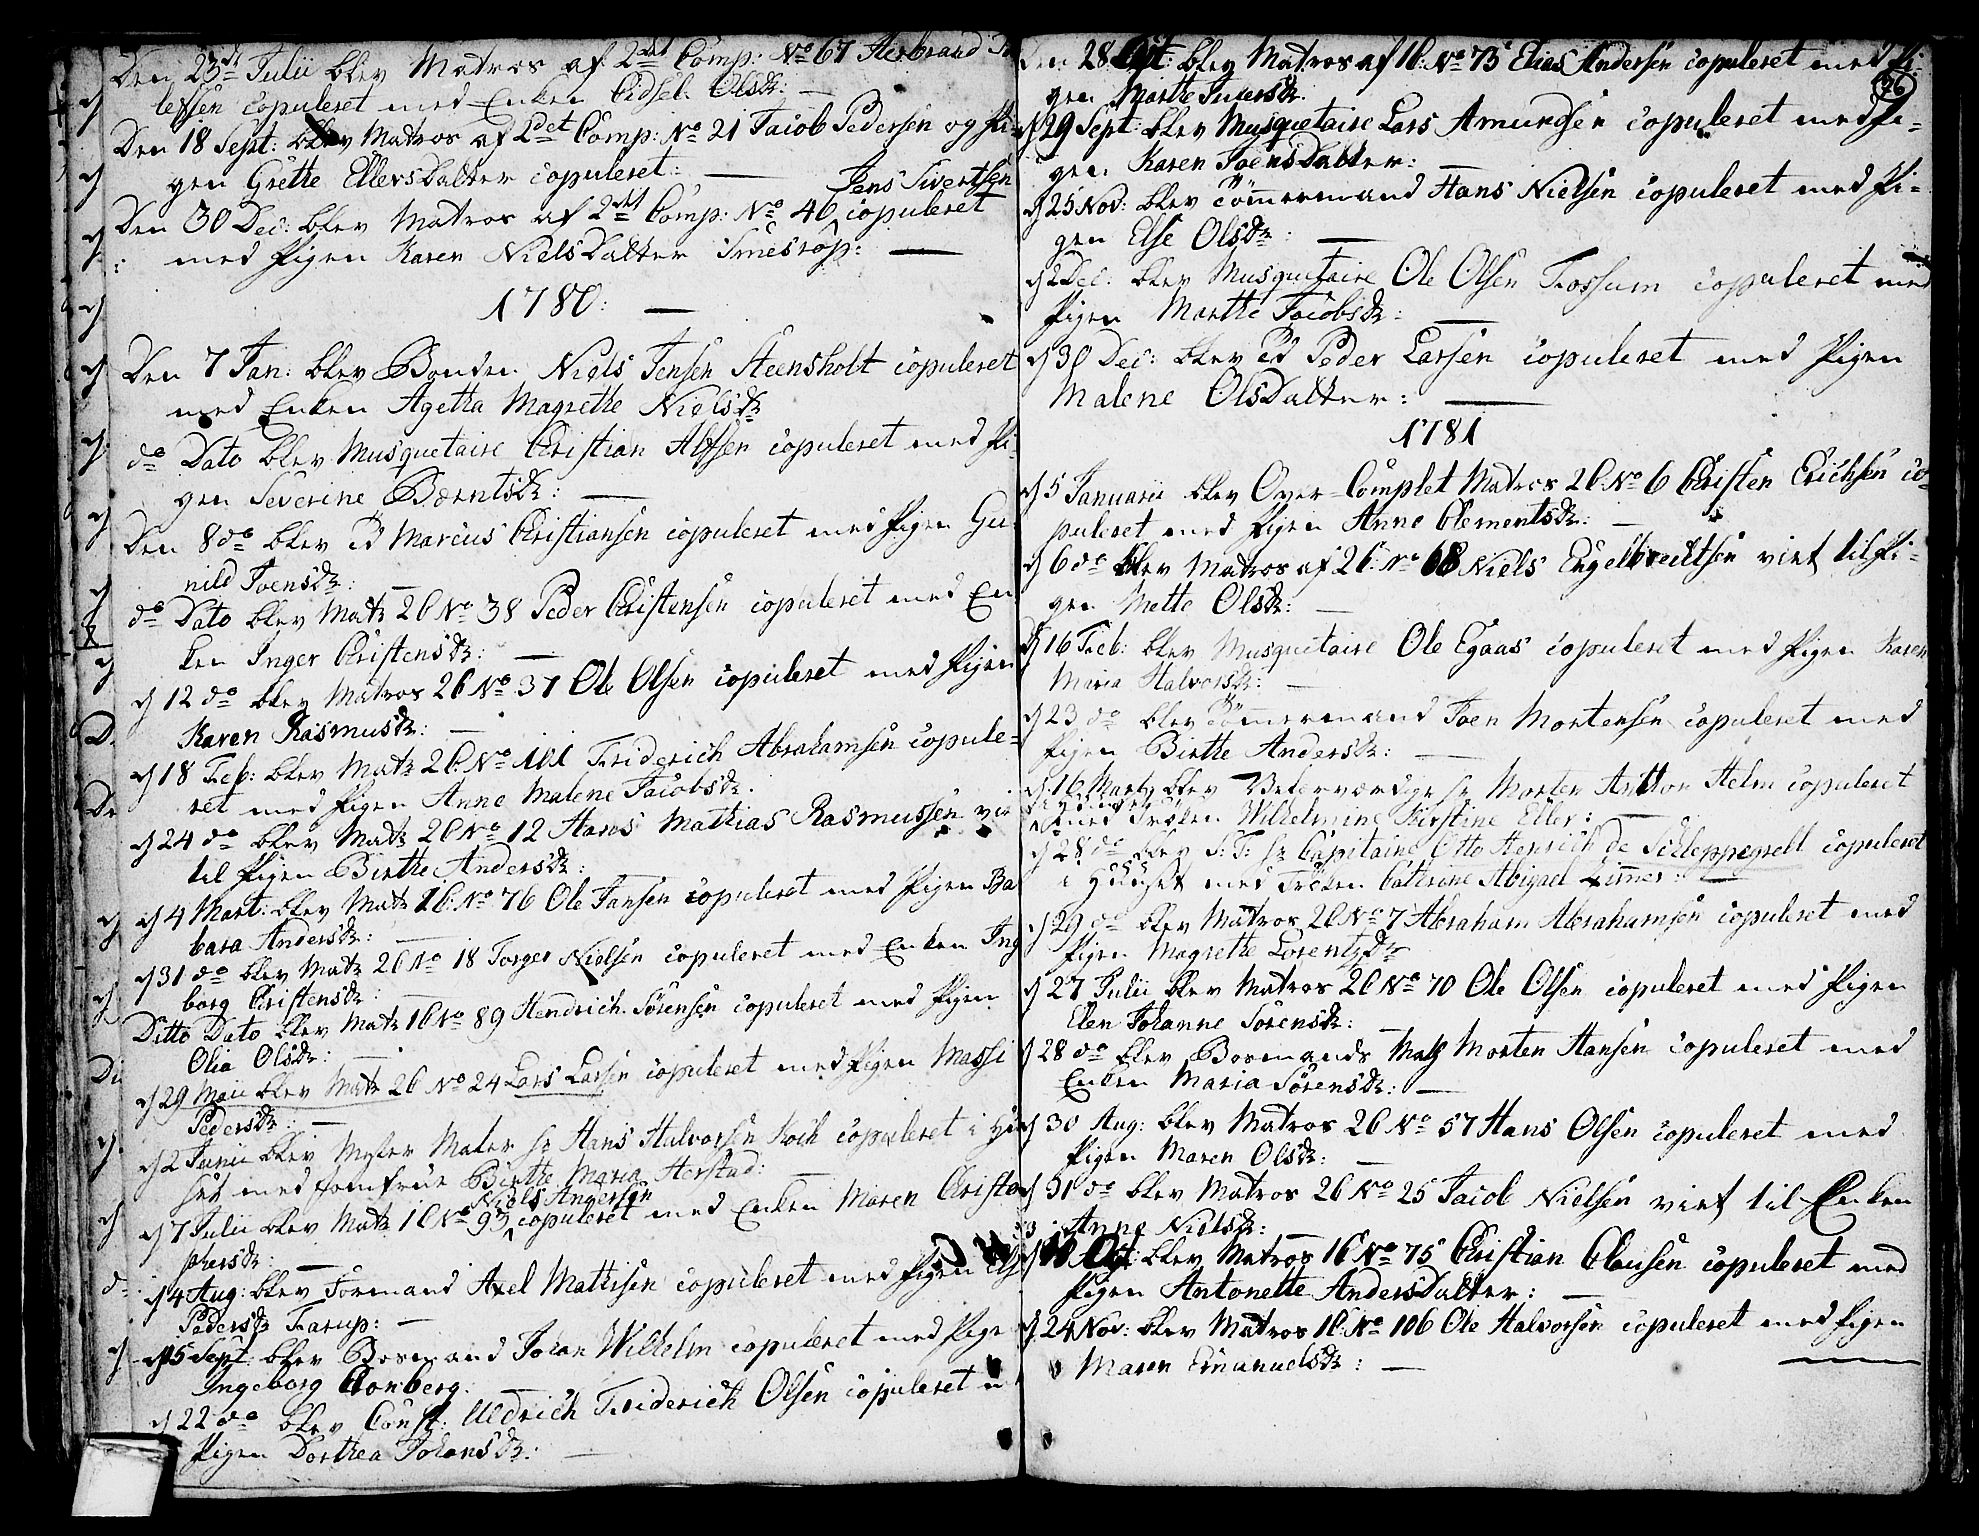 Den 23de Julii blev Matros af 2det Comp: No 67 Herbrand
lefsen copuleret med Enken Cidsel Olsdr: —
Den 18 Sept: blev Matros af 2det Comp: No 21 Jacob Pedersen og Pi-
gen Grethe Ellersdatter copuleret: —
Jens Sivertsen
Den 30 Dec: blev Matros af 2det Comp: No 46 copuleret
med Pigen Karen Nielsdatter Smestrop: —
1780: —
Den 7 Jan: blev Bonden Niels Jensen Steensholt copuleret
med Enken Agetha Magrethe Nielsdr
do Dato blev Musquetaire Christian Alfsen copuleret med Pi-
gen Severine Berntsdr: —
Den 8 do blev Marcus Christiansen copuleret med Pigen Gu-
nild Joensdr: —
do Dato blev Matr 2C No 38 Peder Christensen copuleret med En
ken Inger Christensdr: —
d 12 do blev Matros 2C No 37 Ole Olsen copuleret med Pigen
Karen Rasmusdr: —
d 18 Feb: blev Matr 2C No 101 Friderich Abrahamsen copule-
ret med Pigen Anne Malene Jacobsdr.
d 24 do blev Matr 2C No 12 Hans Mathias Rasmussen vie
til Pigen Birthe Andersdr:
d 4 Mart: blev Matr 1C No 76 Ole Jansen copuleret med Pigen Ba
bara Andersdr: —
d 31 do blev Matr 2C No 18 Torger Nielsen copuleret med Enken Ing
borg Christensdr: —
Ditto Dato blev Matr 1C No 89 Hendrich Sörensen copuleret med Pigen
Olia Olsdr: —
d 29 Maii blev Matr 2C No 24 Lars Larsen copuleret med Pigen Massi
Pedersdr: —
d 2 Junii blev Mester Maler Hr Hans Halvorsen Koch copuleret i Hu
set med Jomfrue Birthe Maria Herstad: —
Niels Andersen
d 7 Julii blev Matr 1C No 93 copuleret med Enken Maren Christo
phersdr: —
d 4 Aug: blev Formand Axel Mathisen copuleret med Pigen
Pedersdr Farup: —
d 15 Sept: blev Bosmand Johan Wilhelm copuleret med Pige
Ingeborg Cronberg. —
d 22 do blev Const: Uldrich Friderich Olsen copuleret
Pigen Dorthea Johansdr: —
26
Den 28 blev Matros af 1C: No 73 Elias Andersen copuleret med Pi-
gen Marthe Iversdr.
d 29 Sept: blev Musquetaire Lars Amundsen copuleret med Pi-
gen Karen Joensdatter: —
d 25 Nov: blev Tömmermand Hans Nielsen copuleret med Pi-
gen Else Olsdr: —
d 2 Dec: blev Musquetaire Ole Olsen Fossum copuleret med
Pigen Marthe Jacobsdr: —
d 30 Dec: blev Peder Larsen copuleret med Pigen
Malene Olsdatter: —
1781
d 5 Januarii blev Over-Complet Matros 2C: No 6 Christen Erichsen co-
puleret med Pigen Anne Clementsdr: —
d 6 do blev Matros af 2C: No 68 Niels Engelbrechtsen viet til Pi-
gen Mette Olsdr: —
d 16 Feb: blev Musquetaire Ole Egaas copuleret med Pigen Karen
Maria Halvorsdr: —
d 23 do blev Tömmermand Joen Mortensen copuleret med
Pigen Birthe Andersdr: —
d 16 Marty blev Velærværdige Hr Morten Anthon Helm copuleret
med Fröken Wilhelmine Kirstine Eller: —
d 28 do blev S: T: Hr Capitaine Otto Henrich de Schleppegrell copuleret
i Huuset med Fröken Cathrine Abigael Zimmer: —
d 29 do blev Matros 2C No 7 Abraham Abrahamsen copuleret med
Pigen Magrethe Lorentzdr
d 27 Julii blev Matros 2C No 70 Ole Olsen copuleret med Pigen
Elen Johanne Sörensdr: —
d 28 do blev Bosmands Math Morten Hansen copuleret med
Enken Maria Sörensdr: —
d 30 Aug: blev Matros 2C No 57 Hans Olsen copuleret med
Pigen Maren Olsdr: —
d 31 do blev Matros 2C No 25 Jacob Nielsen viet til Enken
Anne Nielsdr: —
d 18 Oct: blev Matros 1C No 75 Christian Clausen copuleret med
Pigen Antonette Andersdatter: —
d 24 Nov: blev Matros 1C: No 106 Ole Halvorsen copuleret med Pigen
Maren Emanuelsdr: —